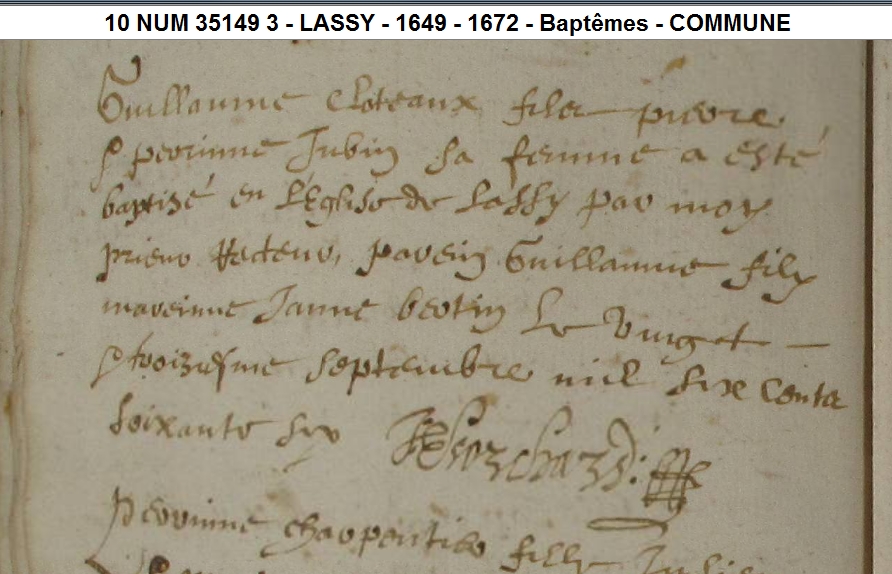 10 NUM 35149 3 - LASSY - 1649 - 1672 - Baptêmes - COMMUNE
Guillaume Cloteaux filz pierre
& perrinne Jubin sa femme a esté
baptizé en L'Eglise de Lassy par moy
prieur Recteur, parein Guillaume filly
mareinne Janne bertin Le vingt
& troiziesme septembre mil six cents
soixante six
perrinne charpentier fille Julie